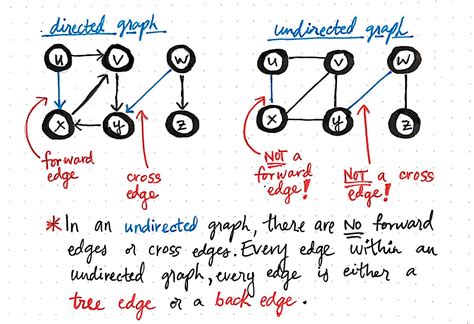 directed graph
undirected graph
u v w
u v w
x y z
x y z
forward edge
cross edge
NOT a forward edge!
NOT a cross edge!
* In an undirected graph, there are NO forward
edges or cross edges. Every edge within an
undirected graph, every edge is either a
tree edge or a back edge.